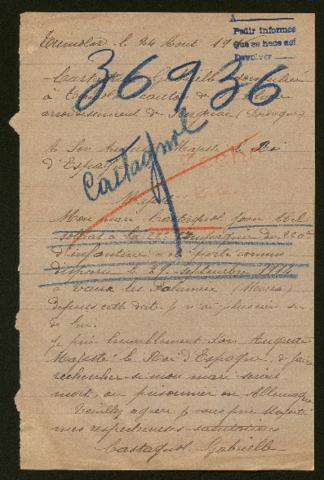 le 24 Aout 19
Pedir informes
Que se hace así
Devolver
36936
Castagnol Gabrielle
à canton de
arrondissement de (Dordogne)
A Son Auguste Majesté le Roi
d'Espagne
Castagnol
Mon mari Castagnol Jean
soldat à la compagnie du 220e
d'infanterie est porté comme
disparu le 29 septembre 1914
à Vaux les Palameix (Meuse)
depuis cette date je n'ai plus rien su
de lui.
Je prie humblement Son Auguste
Majesté le Roi d'Espagne, de faire
rechercher si mon mari serait
mort, ou prisonnier en Allemagne
Veuillez agréer je vous prie Majesté
mes respectueuses salutations
Castagnol Gabrielle